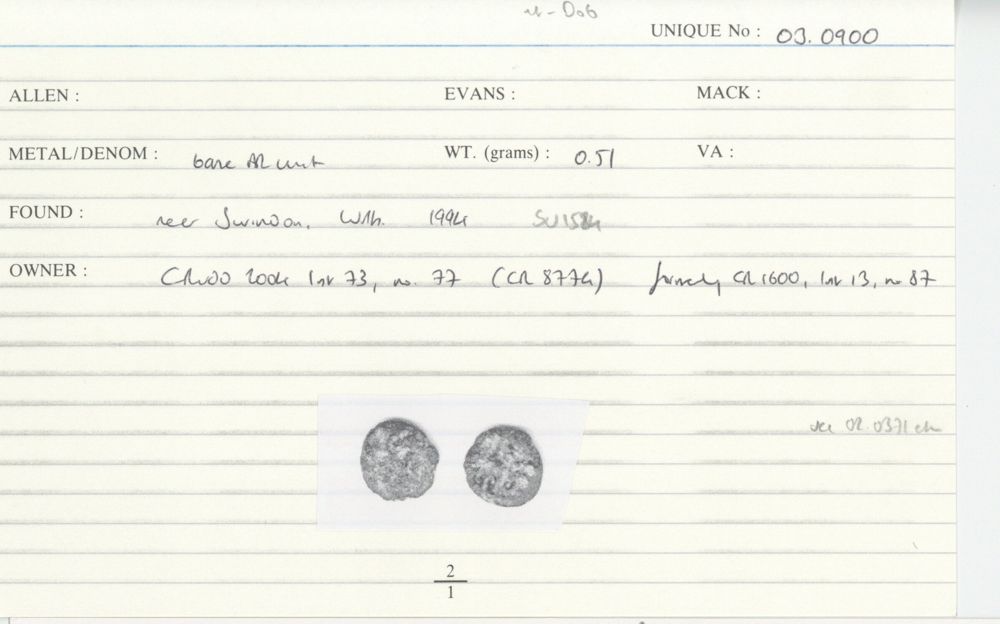 u-Dob
UNIQUE No : 03.0900
ALLEN : EVANS : MACK :
METAL/DENOM : base AR unit WT. (grams) : 0.51 VA :
FOUND : near Swindon, Wilts. 1994 SU1584
OWNER : 2004 Inv 73, no. 77 (CR 8774) formerly CR 1600, Inv 13, no 87
see 02.0371 etc
2
1